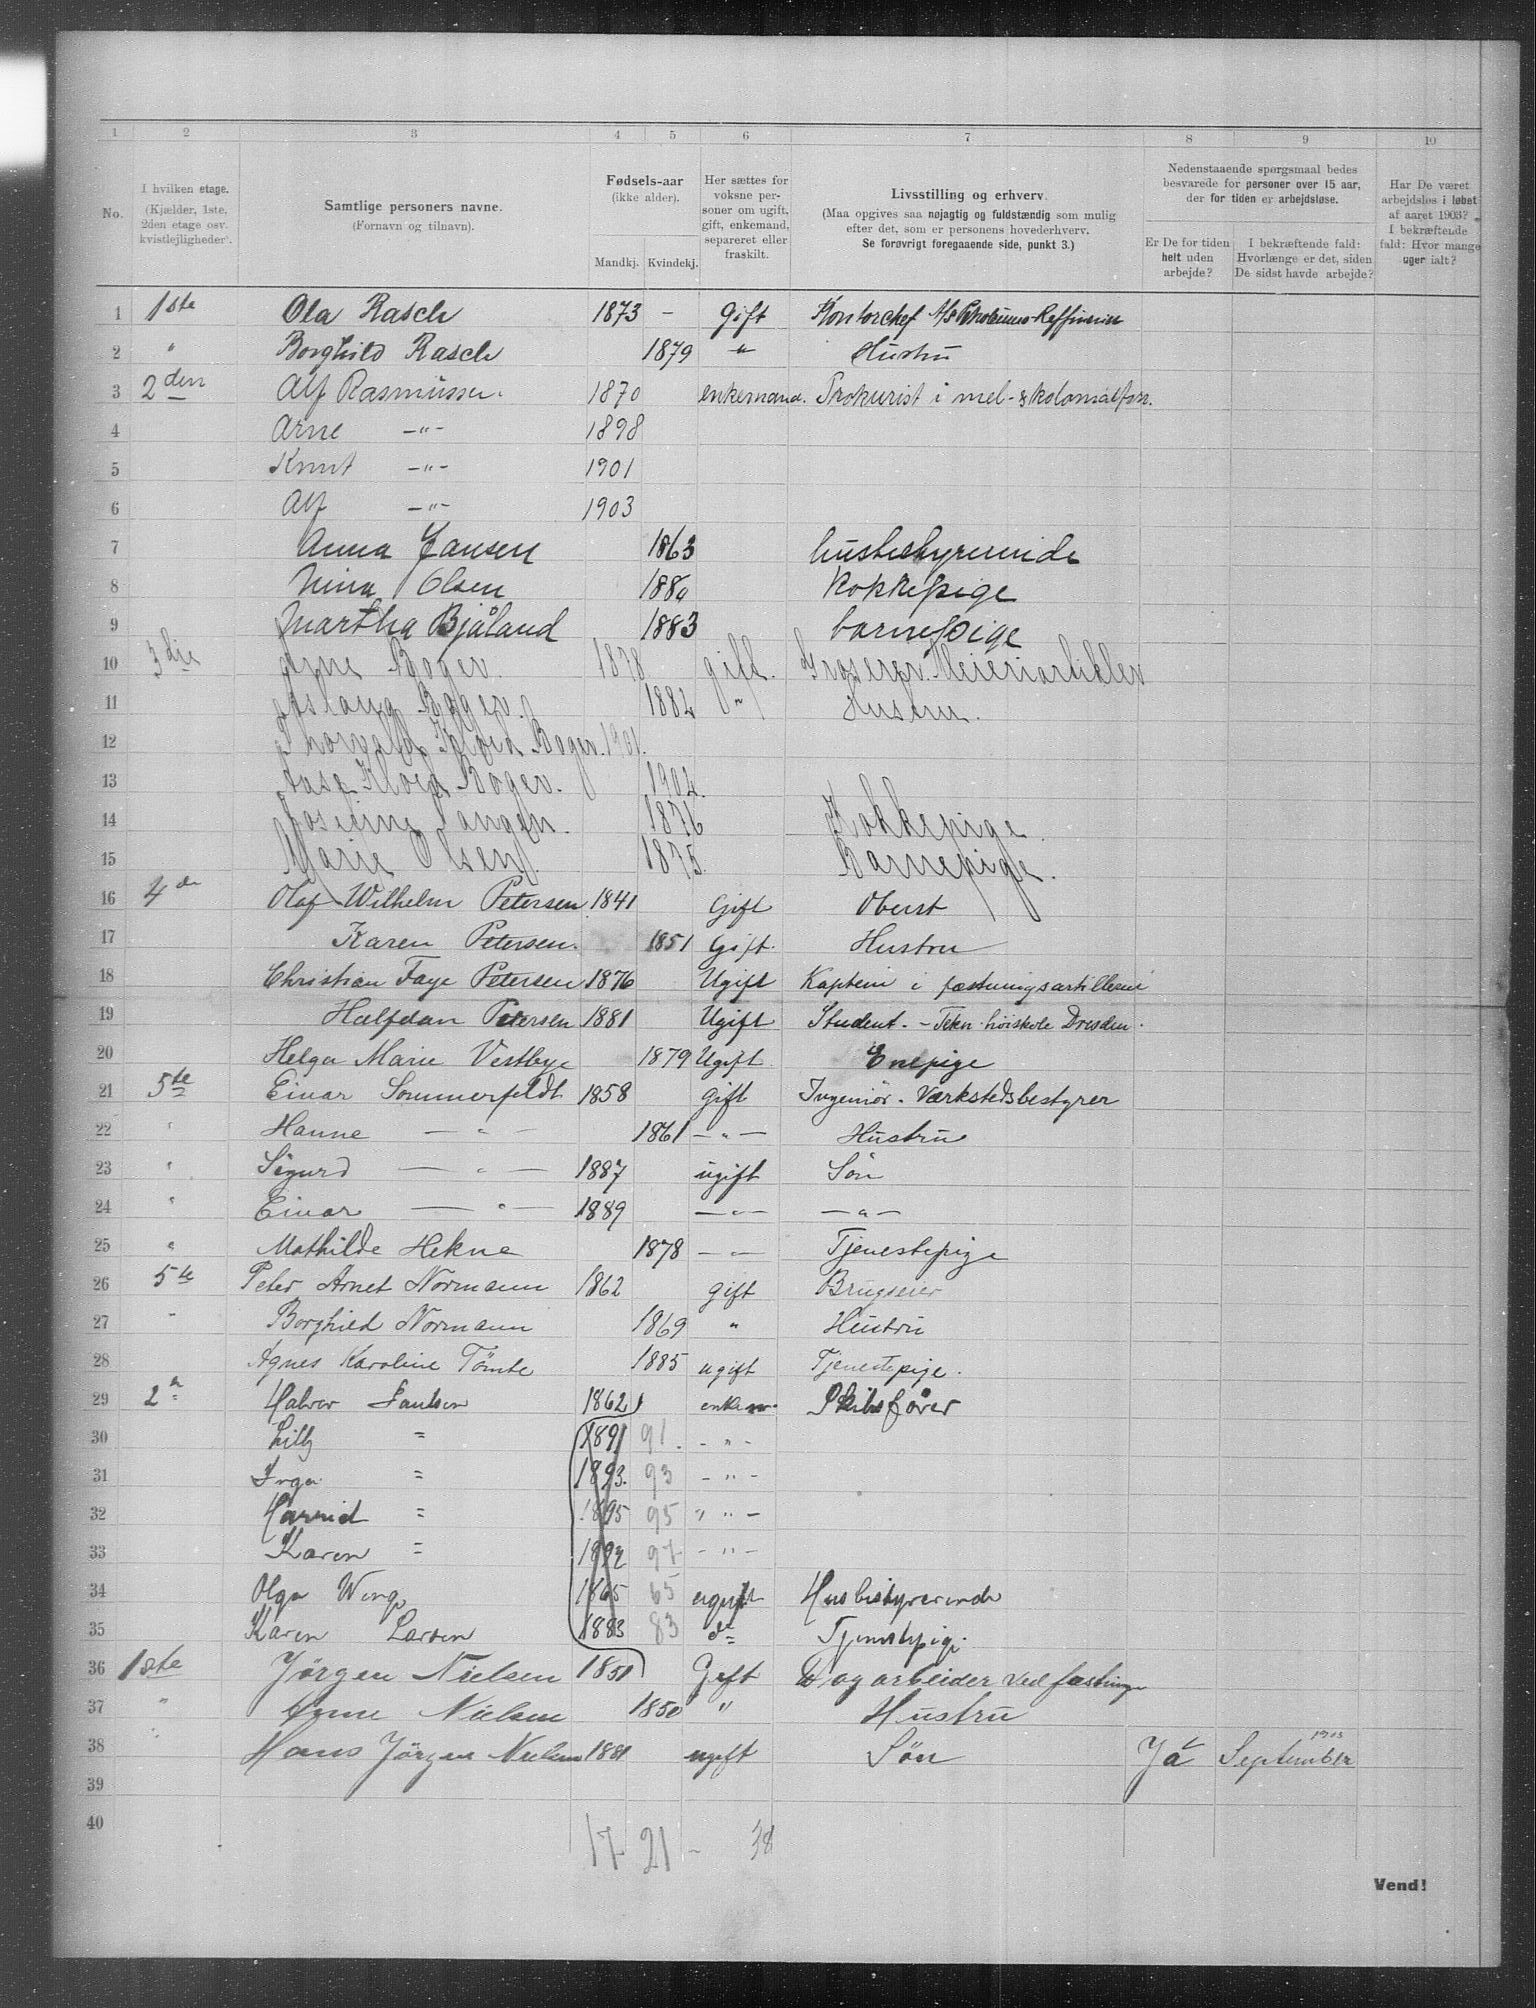 1 2 3 4 5 6 7 8 9 10
No.
I hvilken etage.
(Kjælder, 1ste,
2den etage osv.
kvistleiligheder).
Samtlige personers navne.
(Fornavn og tilnavn).
Fødsels-aar
(ikke alder).
Mandkj. Kvindekj.
Her sættes for
voksne per-
soner om ugift,
gift, enkemand,
separeret eller
fraskilt.
Livsstilling og erhverv.
(Maa opgives saa nøjagtig og fuldstændig som mulig
efter det, som er personens hovederhverv.
Se forøvrigt foregaaende side, punkt 3.)
Nedenstaaende spørgsmaal bedes
besvarede for personer over 15 aar,
der for tiden er arbejdsløse.
Er De for tiden
helt uden
arbejde?
I bekræftende fald:
Hvorlænge er det, siden
De sidst havde arbejde?
Har De været
arbejdsløs i løbet
af aaret 1903?
I bekræftende
fald: Hvor mange
uger ialt?
1 1ste Ola Rasch 1873 – Gift Kontorchef A/S
2 " Borghild Rasch 1879 " Hustru
3 2den Alf Rasmussen. 1870 enkemand. Prokurist i mel- & kolonialforr.
4 Arne –"– 1898
5 Knut –"– 1901
6 Alf –"– 1903
7 Anna Jansen 1863 husbestyrerinde
8 Nina Olsen 1880 Kokkepige
9 Martha Bjåland 1883 barnepige
10 3die Arne Bøgev. 1878 gift. Grosserer. Meieriartikler
11 Aslaug 1884 " Hustru.
12 Thorvald 1901.
13 Aase 1904.
14 Josefine Langen. 1876 Kokkepige.
15 Marie Olsen 1875. Barnepige.
16 4de Olaf Wilhelm Petersen 1841 Gift Oberst
17 Karen Petersen. 1851 Gift. Hustru
18 Christian Faye Petersen 1876 Ugift Kaptein i fæstningsartilleriet
19 Halfdan Petersen 1881 Ugift Student. – Tekn. høiskole Dresden.
20 Helga Marie Vestbye 1879 Ugift Enepige
21 5te Einar Sommerfeldt 1858 gift Ingeniør. Værkstedsbestyrer
22 " Hanne — " — 1861 — " — Hustru
23 " Sigurd — " — 1887 ugift Søn
24 " Einar — " — 1889 — " — — " —
25 " Mathilde Hekne 1878 — " — Tjenestepige
26 5te Peter Arnet Normann 1862 gift Brugseier
27 " Borghild Normann 1869 " Hustru
28 Agnes Karoline Tømte 1885 ugift Tjenestepige.
29 2n Halvor Paulsen 1862 enkem. Skibsfører
30 Lilly = 1891 91. – " –
31 Inga = 1893. 93 – " –
32 = 1895 95 " " –
33 Karen = 1897 97 – " –
34 Olga Wang 1865 65 ugift Husbestyrerinde
35 Karen Larsen 1883 83 do Tjenestepige.
36 1ste Jørgen Nielsen 1851 Gift Dagarbeider ved fæstninge
37 " Anne Nielsen 1850 " Hustru
38 " Hans Jørgen Nielsen 1881 ugift Søn Ja September 1903
39
40
17 – 21 – 38
Vend!